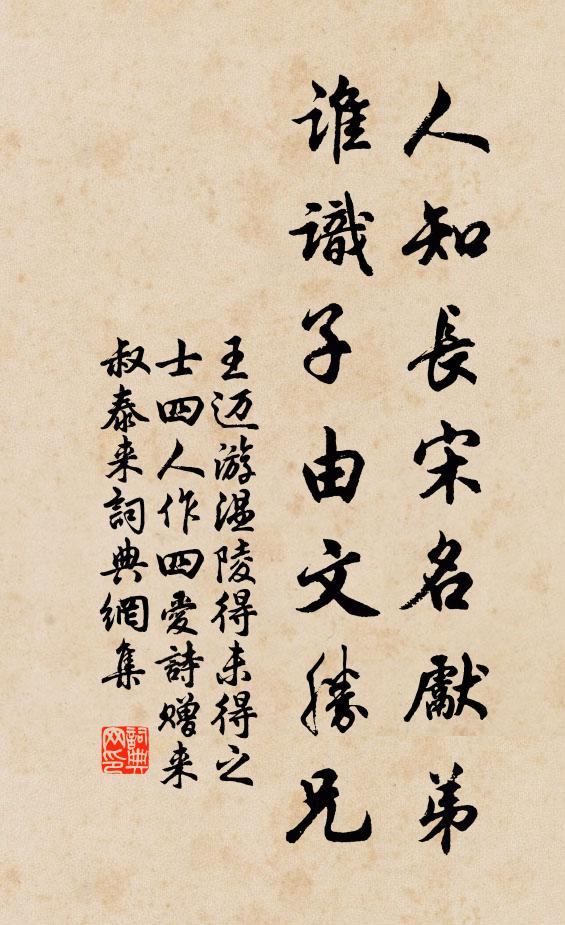 人知長宋名獻弟
誰識子由文勝兄
王迈游温陵得未得之
士四人作四愛詩赠来
叔泰来詞典網集
詞典网印